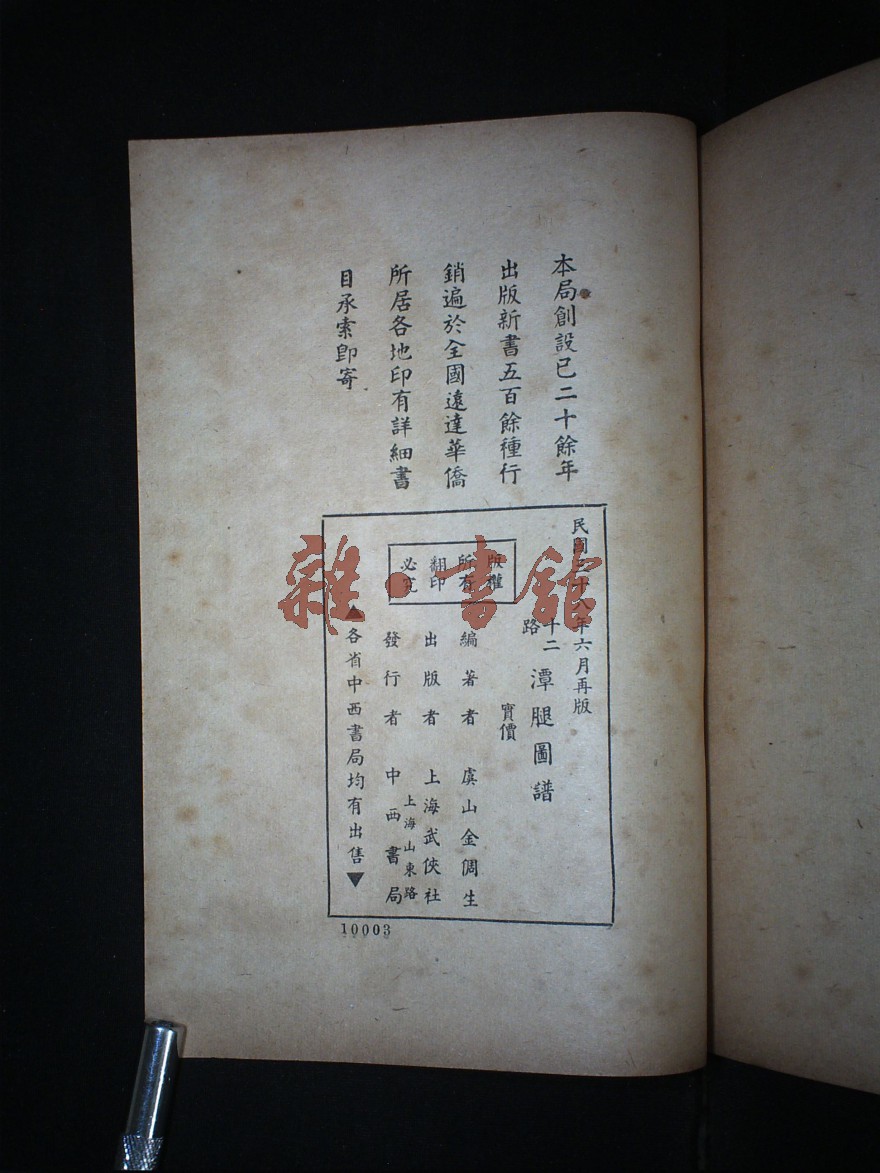 本局創設已二十餘年
出版新書五百餘種行
銷遍於全國遠達華僑
所居各地印有詳細書
目承索卽寄
民國三十八年六月再版
十二路 潭腿圖譜
實價
版權
所有
翻印
必究
編著者 虞山金倜生
出版者 上海武俠社
上海山東路
發行者 中西書局
▲各省中西書局均有出售▼
10003
雜·書館